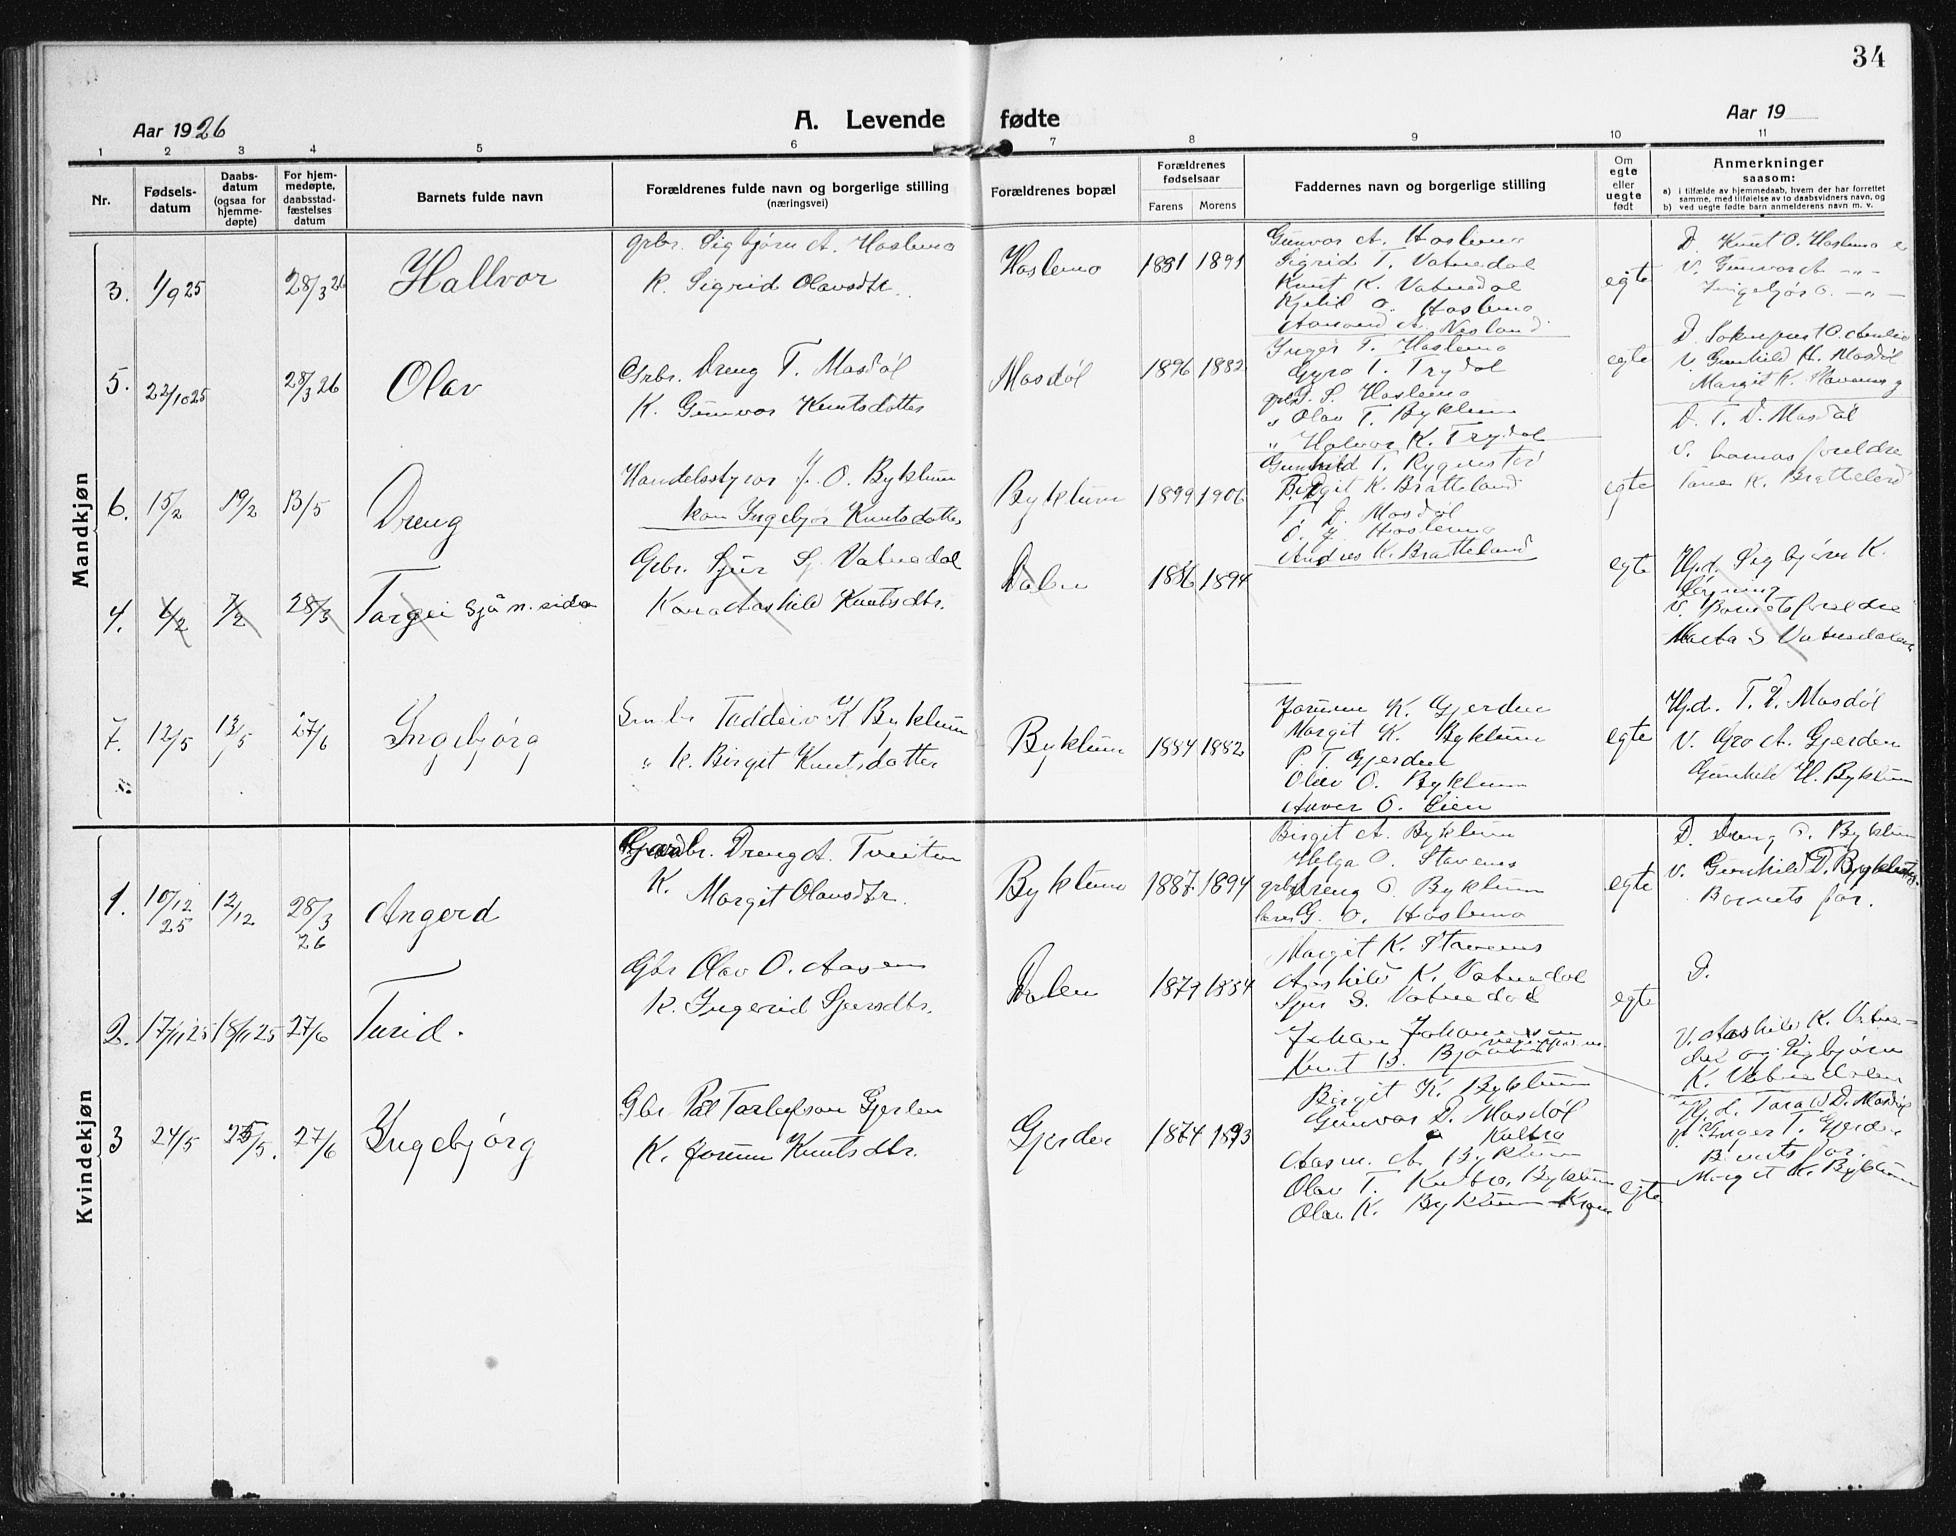 34
Aar 1926
A. Levende fødte
Aar 19
1 2 3 4 5 6 7 8 9 10 11
Nr.
Fødsels-
datum
Daabs-
datum
(ogsaa for
hjemme-
døpte)
For hjem-
medøpte,
daabsstad-
fæstelses
datum
Barnets fulde navn
Forældrenes fulde navn og borgerlige stilling
(næringsvei)
Forældrenes bopæl
Forældrenes
fødselsaar
Farens Morens
Faddernes navn og borgerlige stilling
Om
egte
eller
uegte
født
Anmerkninger
saasom:
a) i tilfælde av hjemmedaab, hvem der har forrettet
samme, med tilføielse av to daabsvidners navn, og
b) ved uegte fødte barn anmelderens navn m. v.
Mandkjøn
3. 1/9 25 28/3 26 Hallvor
grbr. Sigbjørn A. Hoslemo
k. Sigrid Olavsdtr.
Hoslemo 1881 1891
Gunvor A. Hoslemo
Sigrid T. Vatnedal
Knut K. Vatnedal
Kjetil O. Hoslemo
Aanund A. Nesland
egte
D. Knut O. Hoslemo
V. Gunvor A. -„-
Ingebjør O. -„-
5. 22/10 25 28/3 26 Olav
Grbr. Dreng T. Mosdøl
K. Gunvor Knutsdotter
Mosdøl 1896 1882
Inger T. Hoslemo
Gyro T. Trydal
S. Hoslemo
„ Olav T. Byklum
„ Halvor K. Trydal
egte
V. Gunhild H. Mosdøl
Margit K. Stavenes
6. 15/2 19/2 13/5 Dreng
Handelsstyrer J. O. Byklum
kon Ingebjør Knutsdotter
Byklum 1899 1906
Gunhild T. Rygnestad
Birgit K. Bratteland
T. D. Mosdøl
O. J. Hoslemo
Andres K. Bratteland
egte
D. T. D. Mosdøl
V. barnets foreldre
Tone K. Bratteland
4. 6/2 7/2 28/3 Targei sjå n. side
Grbr. Sjur S. Vatnedal
Kona Aashild Knutsdtr.
Dalen 1886 1894
egte
Hjd. Sigbjørn K.
V. Barnets foreldre
Marta S Vatnedalen
7. 12/5 13/5 27/6 Ingebjørg
Smbr Taddeiv K Byklum
„ k. Birgit Knutsdotter
Byklum 1884 1882
Jorunn K. Gjerden
Margit K. Byklum
P. T. Gjerden
Olav O. Byklum
O. Lien
egte
Hjd. T. D. Mosdøl
V. Gro A. Gjerden
Gunhild H. Byklum
Kvindekjøn
1. 10/12 25 12/12 28/3 26 Angerd
Gardbr. Dreng A. Tveiten
K. Margit Olavsdtr.
Byklum 1887 1894
Birgit A. Byklum
Helga O. Stavenes
grbr Dreng O. Byklum
lærer G. O. Hoslemo
egte
D. Dreng O. Byklum
V. Gunhild D. Byklum
Barnets far.
2. 17/11 25 18/11 25 27/6 Turid.
Gbr Olav O. Aasen
k. Ingerid Sjursdtr.
Dalen 1879 1884
Margit K. Stavenes
Aashild K. Vatnedal
Sjur S. Vatnedal
Johan Johannessen
Knut B. Bjåen
egte
D.
V. Aashild K. Vatne-
dal og Sigbjørn
K. Vatnedalen
3 24/5 25/5. 27/6 Ingebjørg
Gbr. Pål Tarjeison Gjerden
K. Jorunn Knutsdtr.
Gjerden 1874 1893
Birgit K. Byklum
Gunvor D. Mosdøl
Kultro
Aasm. A. Byklum
Olav T. Kultro, Byklum
Olav K. Byklum
egte
Hjd. Tarald D. Mosdøl
Inger T. Gjerden
Barnets far.
Margit K. Byklum